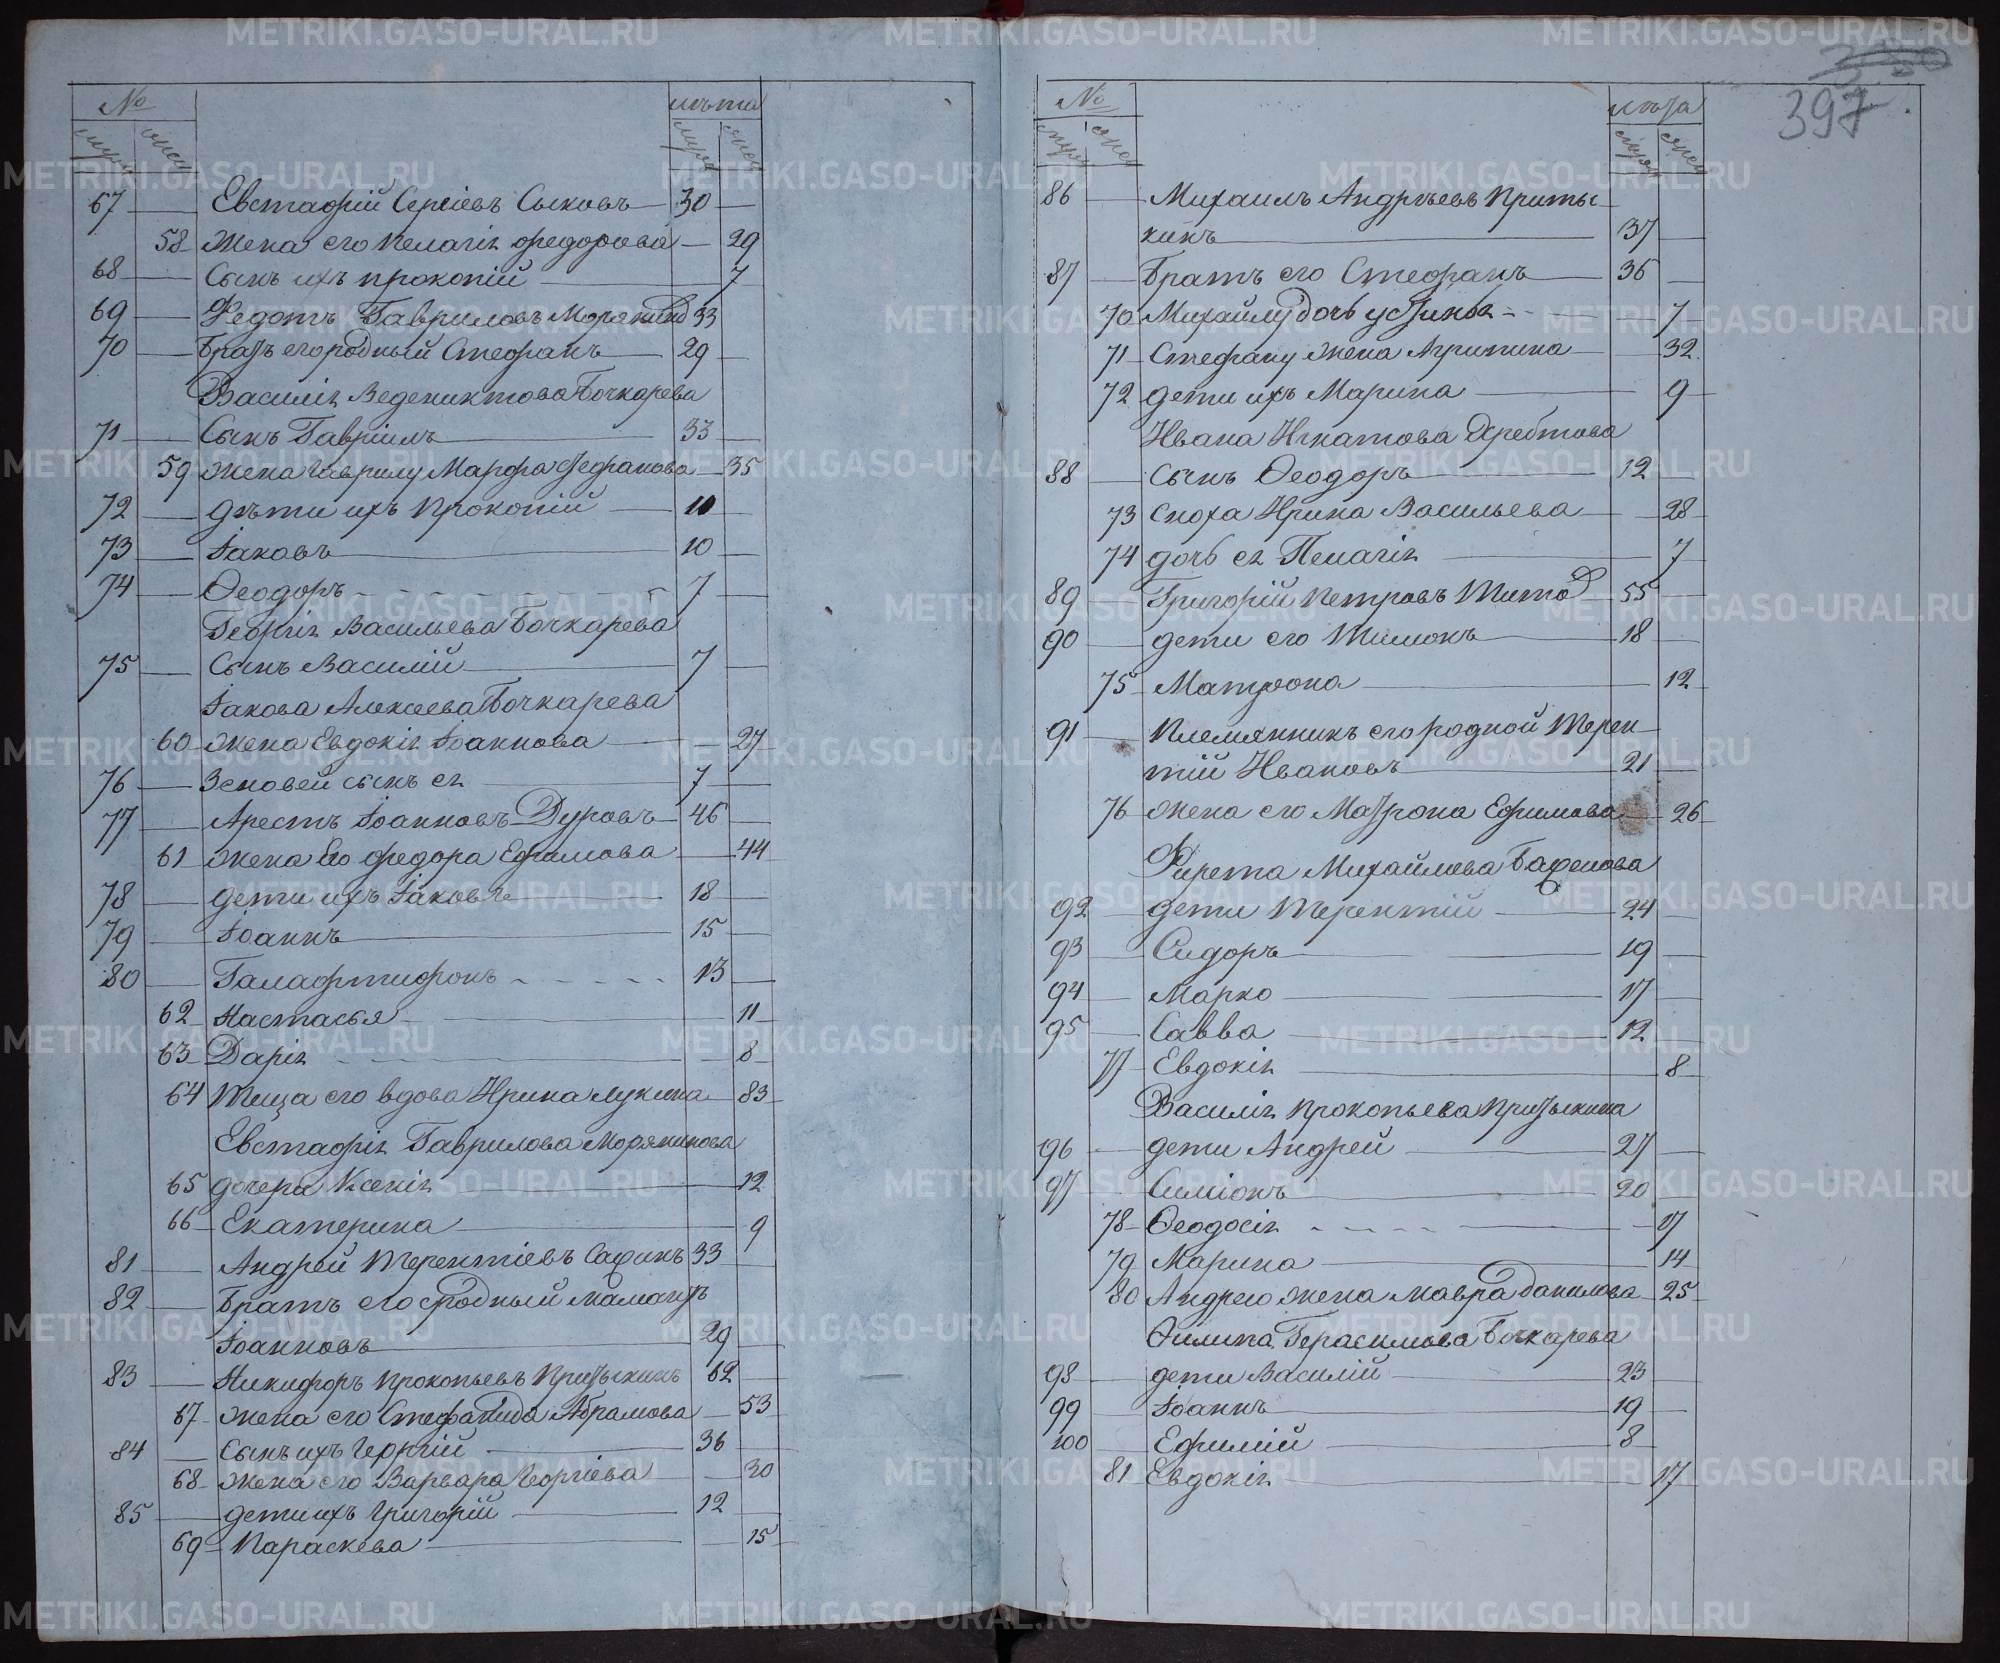 № лѣта
муж жен муж жен
67 Евстафій Сергіевъ Сыковъ 30
58 Жена его Пелагія Федорова 29
68 Сынъ ихъ Прокопій 7
69 Федотъ Гавриловъ 33
70 Братъ его родный Стефанъ 29
Василія Ведениктова Бочкарева
71 Сынъ Гавріилъ 33
59 Жена Гаврилу Марфа Стефанова 35
72 Дѣти ихъ Прокопій 10
73 Іаковъ 10
74 Ѳеодоръ 7
Георгія Васильева Бочкарева
75 Сынъ Василій 7
Іакова Алексеева Бочкарева
60 Жена Евдокія Іоаннова 27
76 Зеновей сынъ ея 7
77 Арестъ Іоанновъ Дуровъ 46
61 Жена Его Федора Ефимова 44
78 Дети ихъ Іаковъ 18
79 Іоаннъ 15
80 Галафтифонъ 13
62 Настасья 11
63 Дарія 8
64 Теща его вдова Ирина Лукина 83
Евстафія Гаврилова
65 Дочери Ксенія 12
66 Екатерина 9
81 Андрей Терентіевъ 33
82 Братъ его сродный
Іоанновъ 29
83 Никифоръ Прокопьевъ Притыкинъ 62
67 Жена его Стефанида Абрамова 53
84 Сынъ ихъ Георгій 36
68 Жена его Варвара Георгіева 30
85 Дети ихъ Григорій 12
69 Параскева 15
397
№ лѣта
муж жен муж жен
86 Михаилъ Андрѣевъ Приты
кинъ 37
87 Братъ его Стефанъ 36
70 Михайлу дочь Устинья 7
71 Стефану жена Агрипина 32
72 Дети ихъ Марина 9
Ивана Игнатова
88 Сынъ Ѳеодоръ 12
73 Сноха Ирина Васильева 28
74 дочь ея Пелагія 7
89 Григорій Петровъ Титов 55
90 Дети его Тимонъ 18
75 Матрона 12
91 Племянникъ его родной Терен
тій Ивановъ 21
76 Жена его Матрона Ефимова 26
Михайлова
92 Дети Терентій 24
93 Сидоръ 19
94 Марко 17
95 Савва 12
77 Евдокія 8
Василія Прокопьева Притыкина
96 Дети Андрей 27
97 Симіонъ 20
78 Ѳеодосія 17
79 Марина 14
80 Андрею жена Мавра Данилова 25
Филипа Герасимова Бочкарева
98 Дети Василій 23
99 Іоаннъ 19
100 Ефимій 8
81 Евдокія 17
METRIKI.GASO-URAL.RU